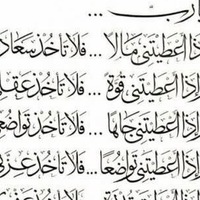 ارب ...
ذا أعطيتني مالا ... فلا تأخذ سعاد
إذا أعطيتني قوة ... فلا تأخذ عقلي
إذا أعطيتني جاها ... فلا تأخذ تواضع
إذا أعطيتني تواضعا ... فلا تأخذ عز